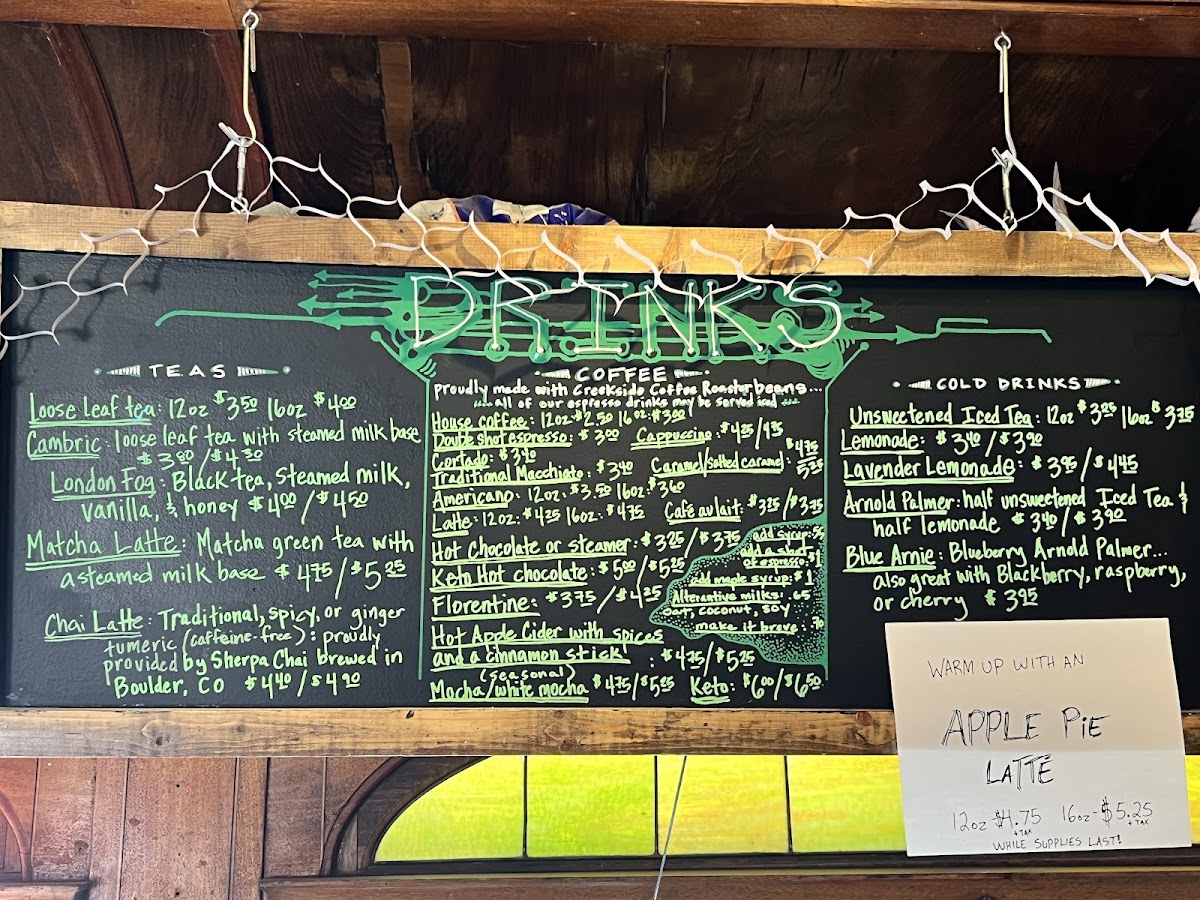 DRINKS
TEAS
Loose leaf tea: 12oz $3.50 16oz $4.00
Cambric: loose leaf tea with steamed milk base
$3.80/$4.30
London Fog: Black tea, Steamed milk,
vanilla, & honey $4.00/$4.50
Matcha Latte: Matcha green tea with
a steamed milk base $4.75/$5.25
Chai Latte: Traditional, spicy, or ginger
tumeric (caffeine-free): proudly
provided by Sherpa Chai brewed in
Boulder, CO $4.40/$4.90
COFFEE
Proudly made with Creekside Coffee Roaster beans...
all of our espresso drinks may be served iced
House coffee: 12oz-$2.50 16oz:$3.00
Double shot espresso: $3.00 Cappuccino: $4.25/4.75
Cortado: $3.40
Traditional Macchiato: $3.40 Caramel/salted caramel: $4.75 5.25
Americano: 12oz: $3.50 16oz: $3.60
Latte: 12oz: $4.25 16oz: $4.75 Café au lait: $3.25/$3.75
Hot Chocolate or steamer: $3.25/$3.75
Keto Hot chocolate: $5.00/$5.25
Florentine: $3.75/$4.25
Hot Apple Cider with spices
and a cinnamon stick
(seasonal) : $4.75/$5.25
Mocha/white mocha $4.75/$5.25 Keto: $6.00/$6.50
add syrup:
add a shot
of espresso: $1
add maple syrup: $1
Alterantive milks: .65
oat, coconut, soy
make it breve .70
COLD DRINKS
Unsweetened Iced Tea: 12oz $3.25 16oz $3.75
Lemonade: $3.40/$3.90
Lavender Lemonade: $3.95/$4.45
Arnold Palmer: half unsweetened Iced Tea &
half lemonade $3.40/$3.90
Blue Arnie: Blueberry Arnold Palmer...
also great with Blackberry, raspberry,
or cherry $3.95
WARM UP WITH AN
APPLE PiE
LATTÉ
12oz-$4.75 16oz-$5.25
+TAX +TAX
WHILE SUPPLIES LAST!